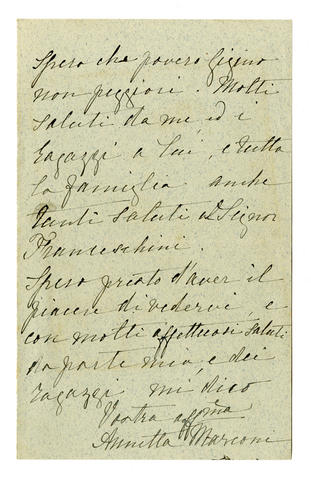 Spero che povero Gigino
non peggiori. Molti
saluti da me, ed i
ragazzi a lui, e tutta
la famiglia anche
tanti saluti al Signor
Franceschini.
Spero presto d'aver il
piacere di vedervi, e
con molti affettuosi saluti
da parte mia, e dei
ragazzi mi dico
Vostra affma
Annetta Marconi